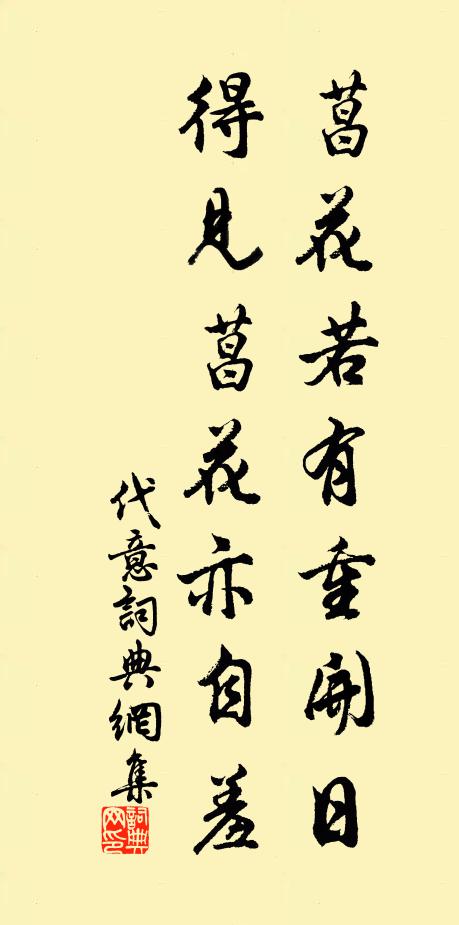 菖花若有重開日
得見菖花亦自羞
代意詞典網集
詞典
网印